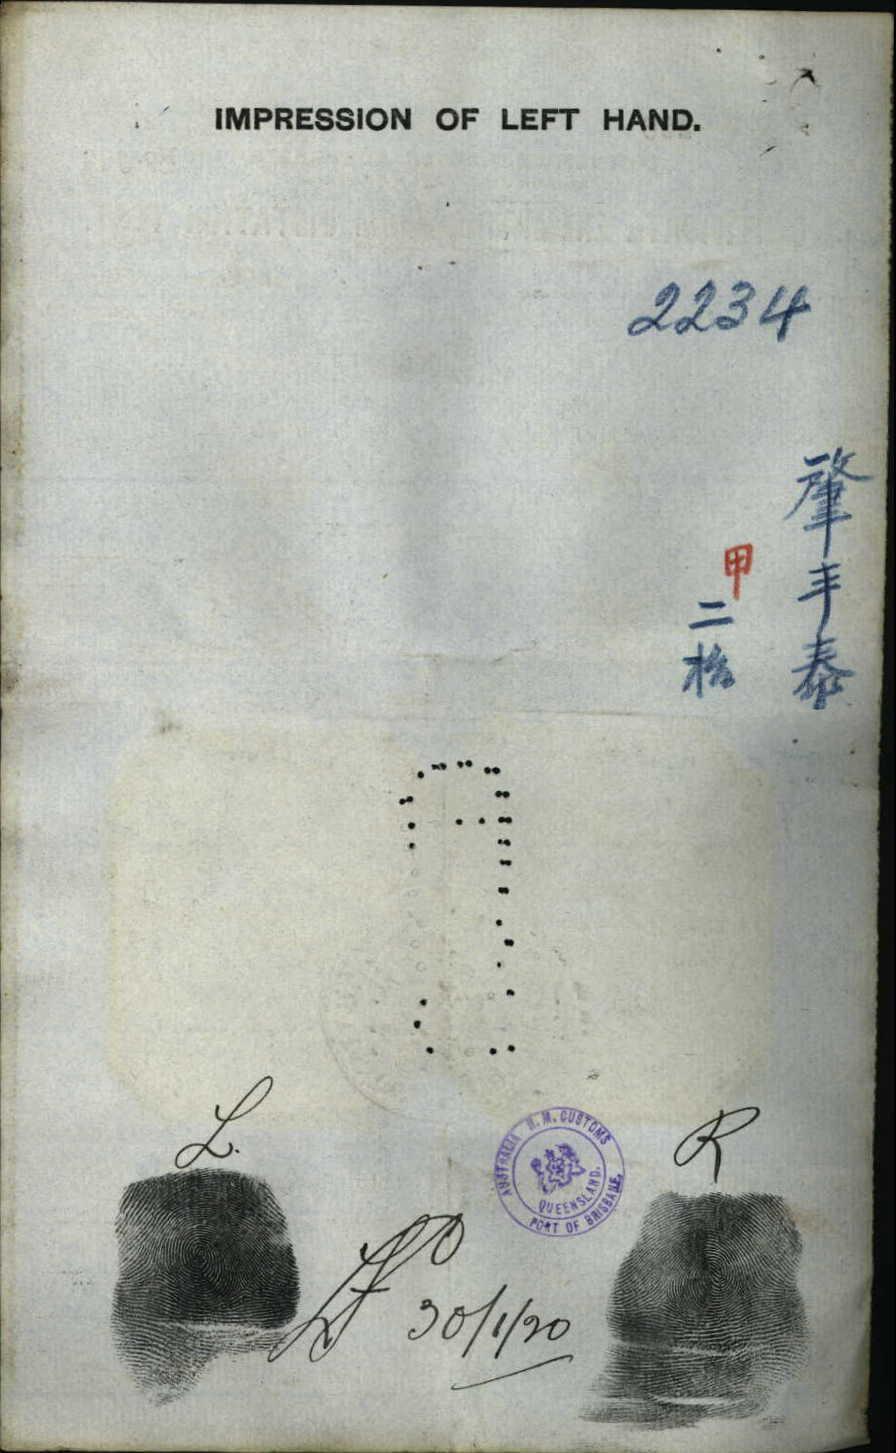 IMPRESSION OF LEFT HAND.
2234
肇丰泰
甲
二桧
L.
R
AUSTRALIA H.M. CUSTOMS
QUEENSLAND.
PORT OF BRISBANE.
30/1/20